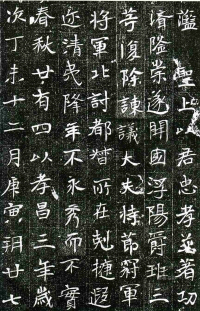 蘊聖上以君忠孝並著功
濟隆崇遂開國浮陽爵班三
等復除諫議大夫持節冠軍
將軍北討都督所在剋捷遐
迩清降年不永秀而不實
春秋廿有四以孝昌三年歲
次丁未十二月庚寅朔廿七